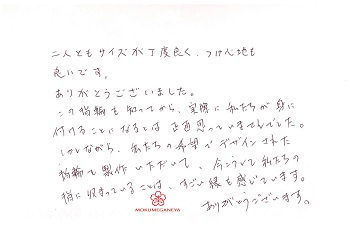 二人ともサイズが丁度良く、つけ心地も
良いです。
ありがとうございました。
この指輪を知ってから、実際に私たちが身に
付けることになるとは正直思っていませんでした。
しかしながら、私たちの希望でデザインされた
指輪を製作いただいて、今こうして私たちの
指に収まっていることは、すごい縁を感じています。
ありがとうございます。
MOKUMEGANEYA